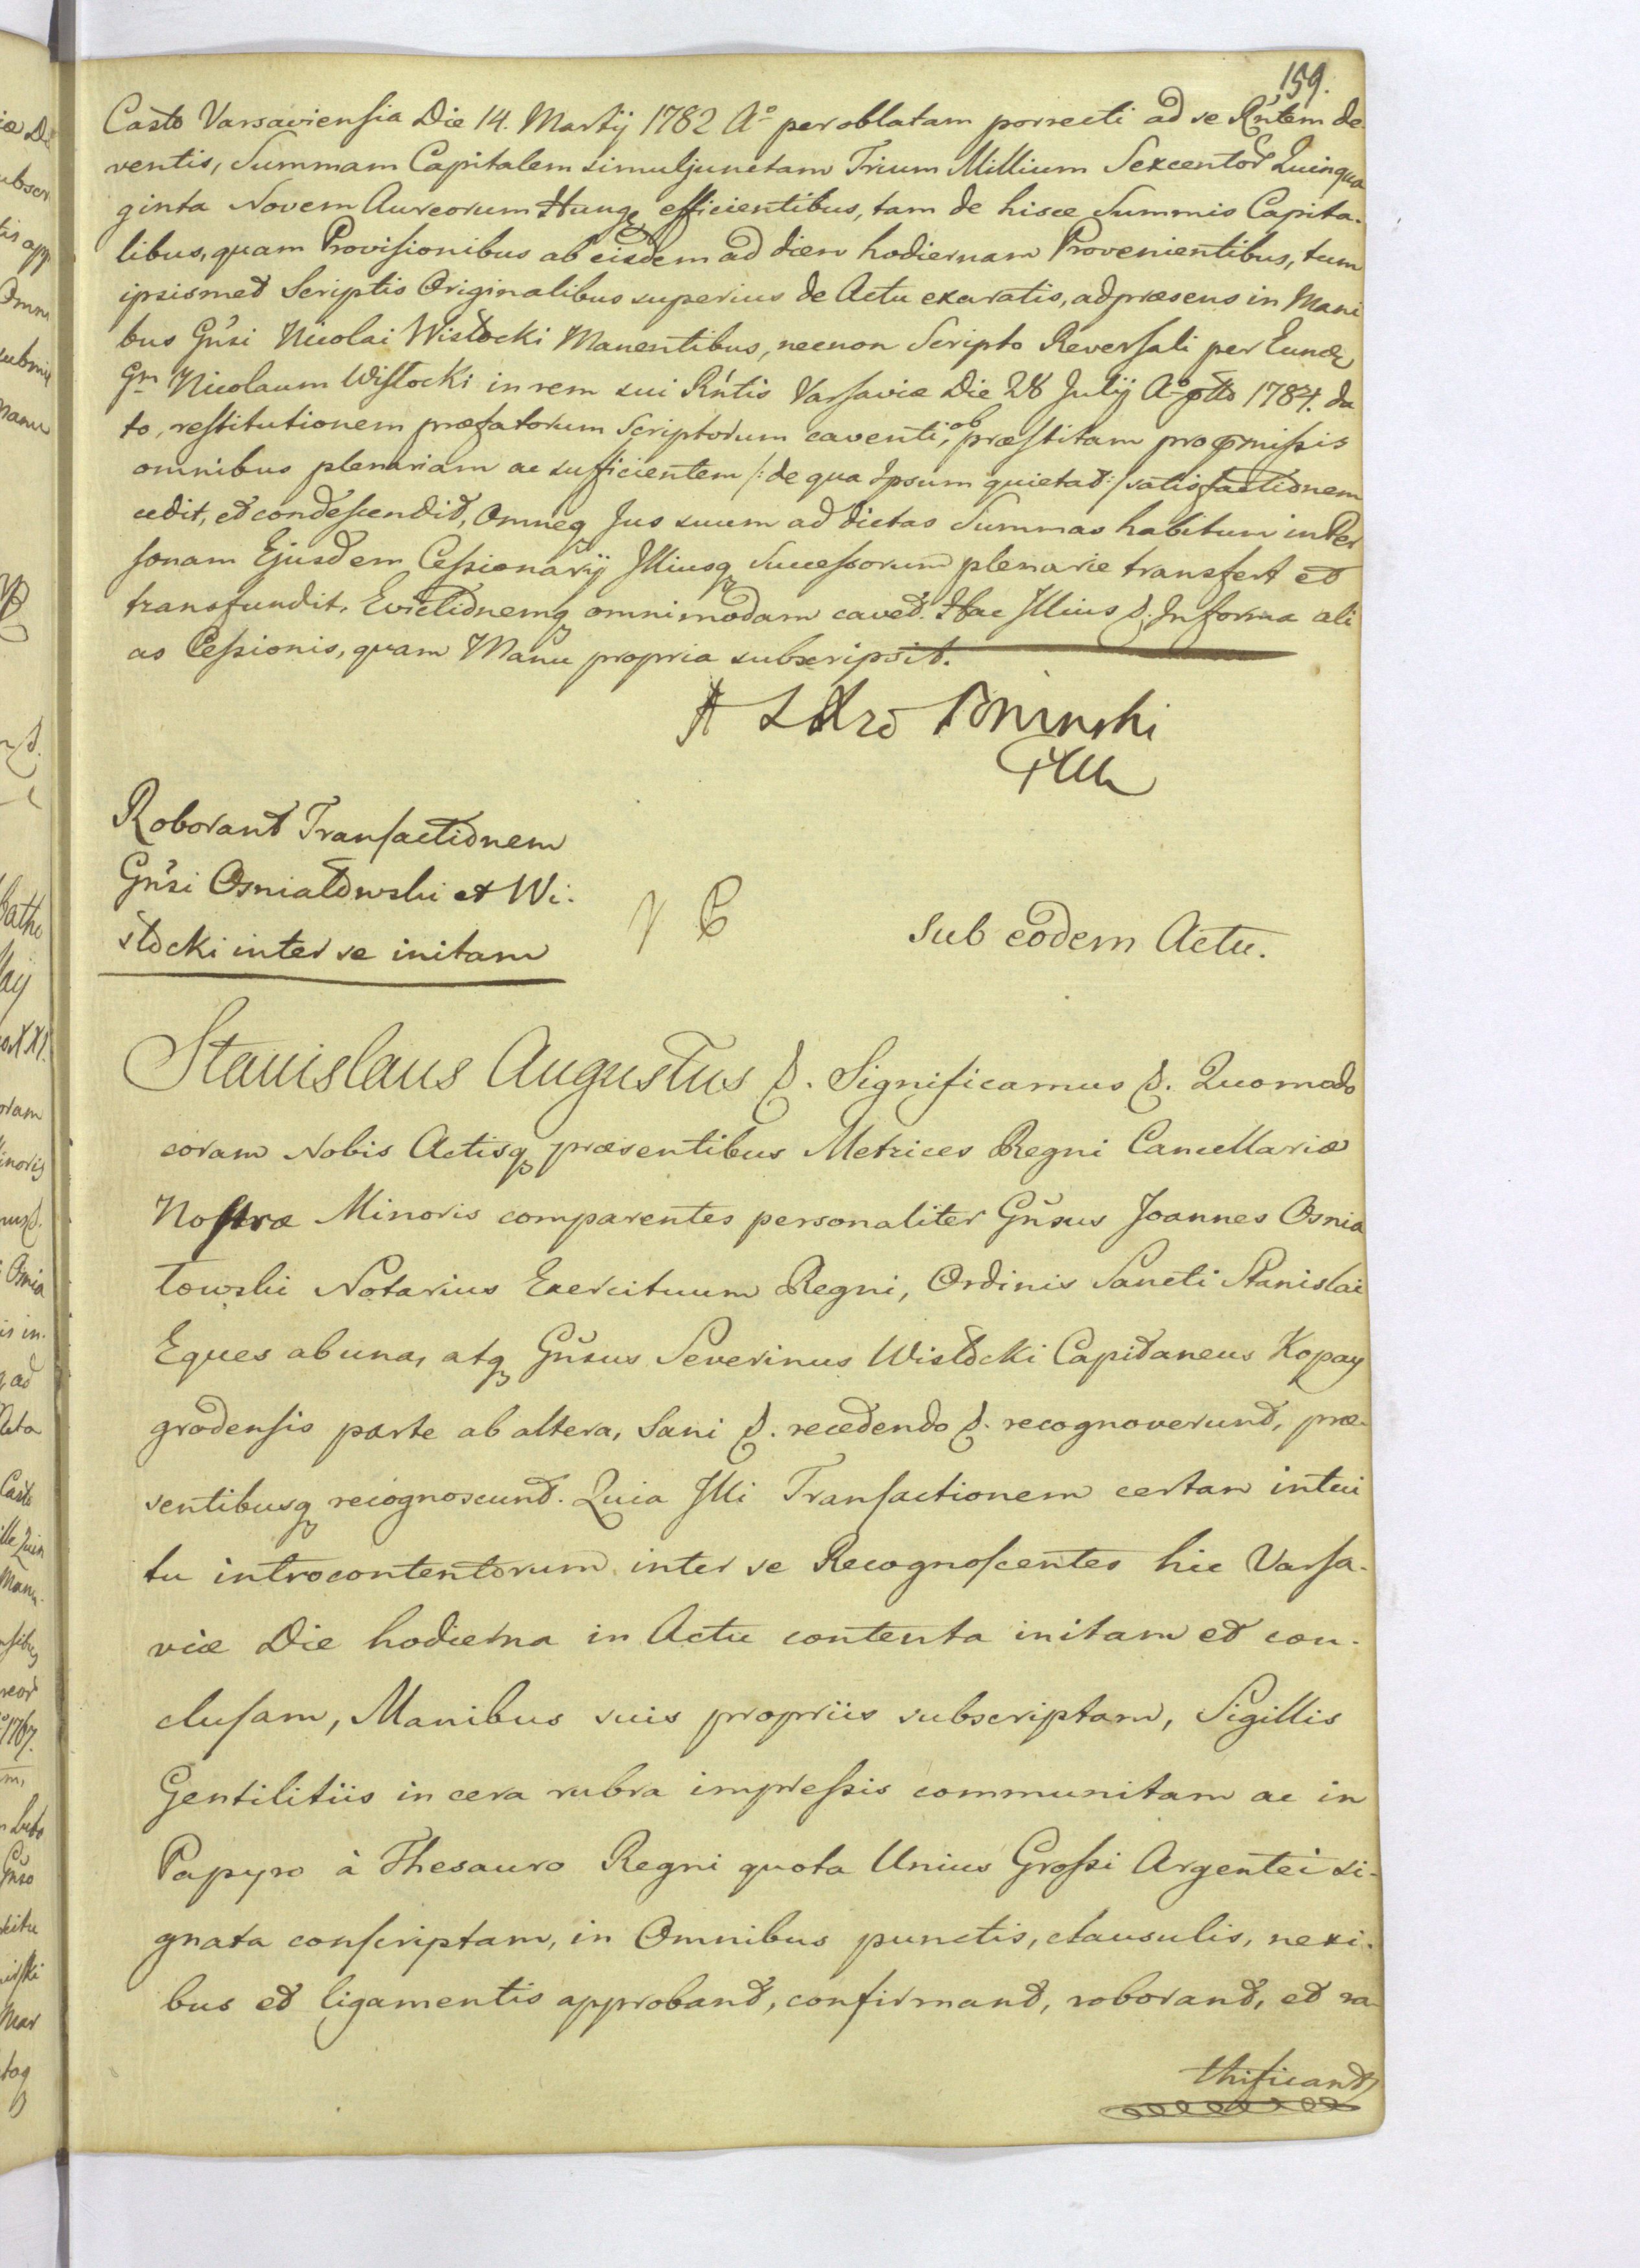 159.
Casto Varsaviensia Die 14. Martij 1782 Aº per oblatam porrecti ad se Rńtem de-
ventis, Summam Capitalem simuljunctam Trium Millium Sexcentor Quinqua
ginta Novem Aureorum Hungq efficientibus, tam de hisce Summis Capita-
libus, quam Provisionibus ab eisdem ad diem hodiernam Provenientibus, tum
ipsismet Scriptis Originalibus superius de Actu exaratis, adpræsens in Mani
bus Gńsi Nicolai Wisłocki Manentibus, necnon Scripto Reversali per Eundq
Gm Nicolaum Wisłocki in rem sui Rńtis Varsaviæ Die 28 Julij Aº 1784. da
to, restitutionem præfatorum Scriptorum caventi, ob præstitam pro præmissis
omnibus plenariam ac sufficientem /: de qua Ipsum quietat :/ satisfactionem
cedit, et condescendit, Omneq Jus suum ad dictas Summas habitum in Per
sonam Ejusdem Cessionarij Illiusq Successorum plenarie transfert et
transfundit, Evictionemq omnimodam cavet. Hac Illius &. In forma ali
as Cessionis, quam Manu propria subscripsit.
Poninski
Roborant Transactionem
Gńsi Osniałowski et Wi-
słocki inter se initam
Sub eodem Actu.
Stanislaus Augustus &. Significamus &. Quomodo
coram Nobis Actisq præsentibus Metrices Regni Cancellariæ
Nostræ Minoris comparentes personaliter Gńsus Joannes Osnia
łowski Notarius Exercituum Regni, Ordinis Sancti Stanislai
Eques ab una, atq Gńsus Severinus Wisłocki Capitaneus Kopay
grodensis parte ab altera, Sani &. recedendo &. recognoverunt, præ-
sentibusq recognoscunt. Quia Illi Transactionem certam intui
tu introcontentorum inter se Recognoscentes hic Varsa-
viæ Die hodierna in Actu contenta initam et con-
clusam, Manibus suis propriis subscriptam, Sigillis
Gentilitiis in cera rubra impressis communitam ac in
Papyro à Thesauro Regni quota Unius Grossi Argentei si-
gnata conscriptam, in Omnibus punctis, clausulis, nexi-
bus et ligamentis approband, confirmand, roborand, et ra-
thificand